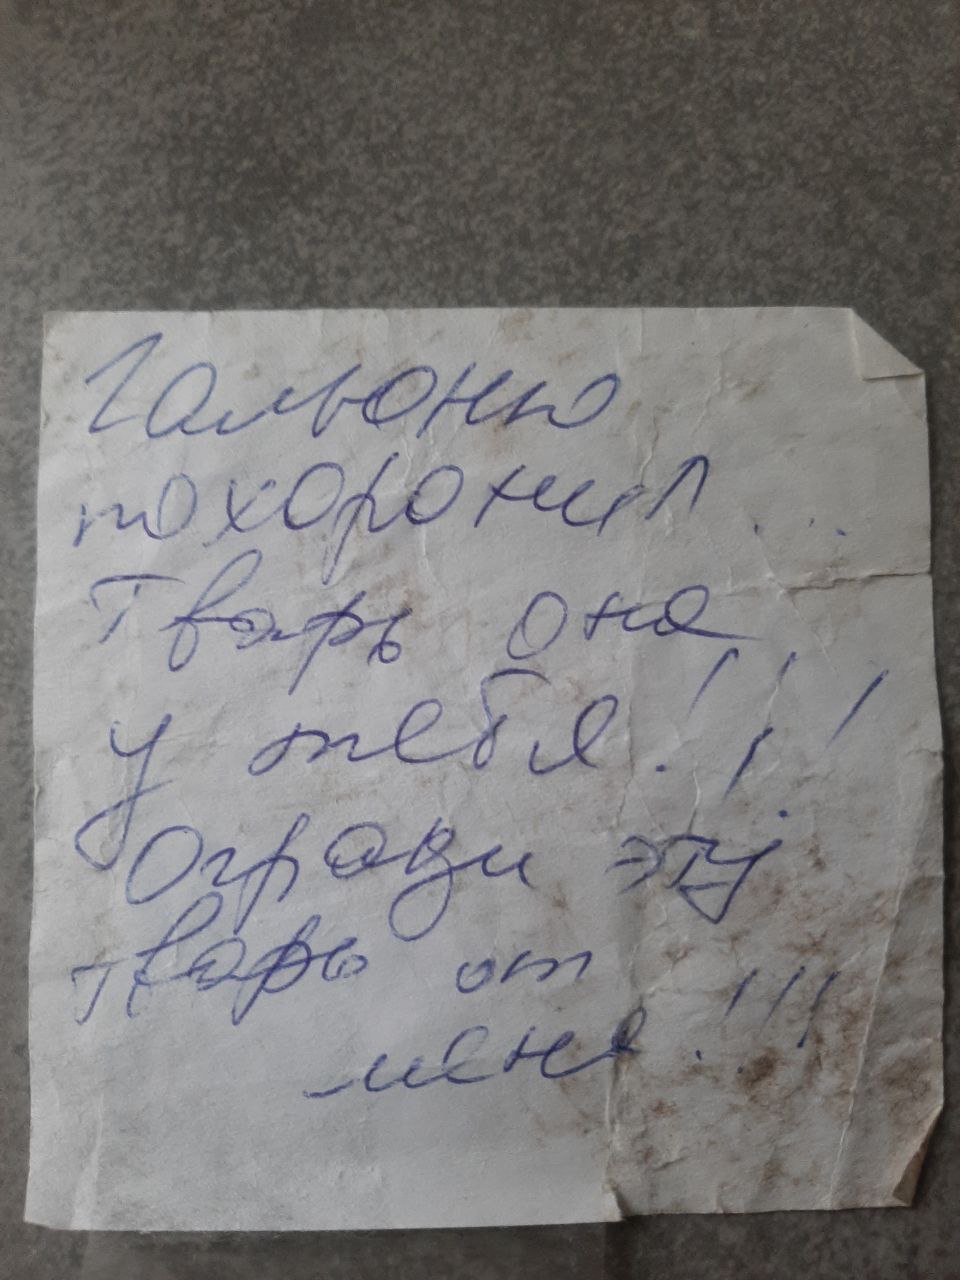 Гальоню
похоронил...
Тварь она
у тебя!!!
Огради эту
тварь от
меня!!!